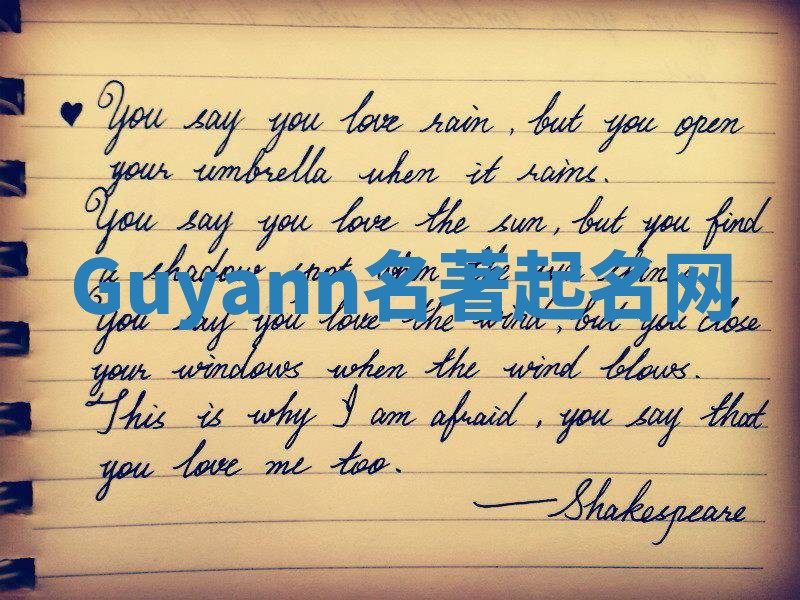 ♥ You say you love rain, but you open
your umbrella when it rains.
You say you love the sun, but you find
a shadow spot when the sun shines.
Guyann名著起名网
You say you love the wind, but you close
your windows when the wind blows.
This is why I am afraid, you say that
you love me too.
—Shakespeare